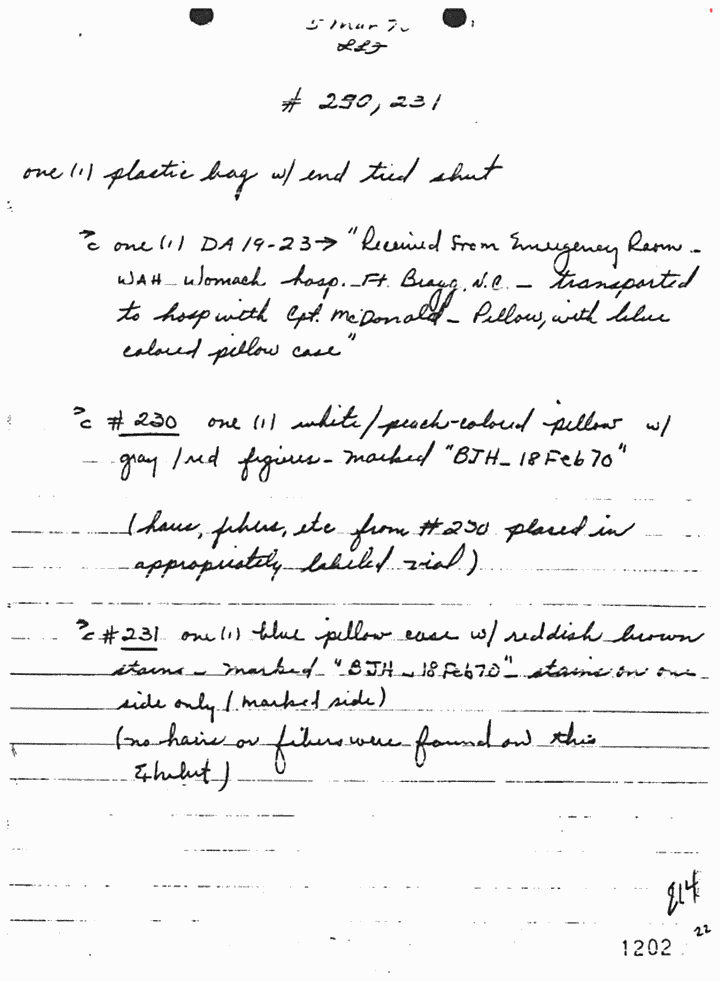 5 Mar 70
# 230, 231
one (1) plastic bag w/ end tied shut
→c one (1) DA 19-23 → "Received from Emergency Room -
WAH Womack hosp. Ft. Bragg, N.C. - transported
to hosp with Cpt. McDonald - Pillow, with blue
colored pillow case"
→c #230 one (1) white/peach-colored pillow w/
gray/red figures - marked "BJH - 18 Feb 70"
(hairs, fibers, etc from #230 placed in
appropriately labeled vial)
→c #231 one (1) blue pillow case w/ reddish brown
stains - marked "BJH - 18 Feb 70" - stains on one
side only (marked side)
(no hairs or fibers were found on this
Exhibit)
914
22
1202